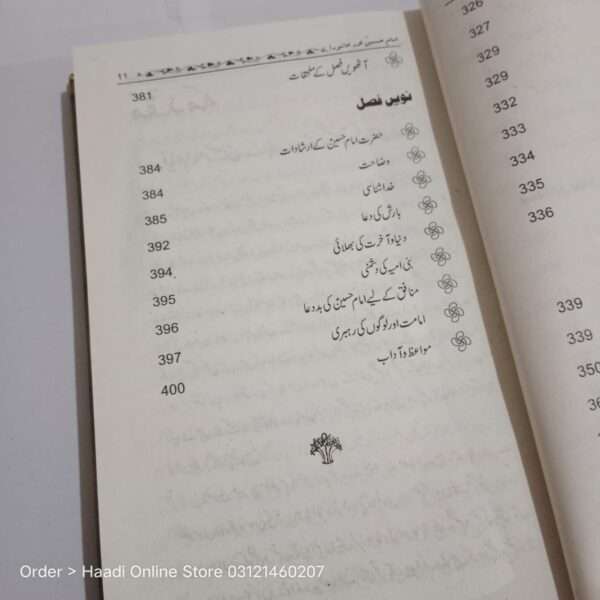 امام حسینؑ اور عاشورہ ۱۱
آٹھویں فصل کے ملحقات 381
نویں فصل
حضرت امام حسینؑ کے ارشادات 384
وضاحت 384
خدا شناسی 385
بارش کی دعا 392
دنیا و آخرت کی بھلائی 394
بنی امیہ کی دشمنی 395
منافق کے لیے امام حسینؑ کی بددعا 396
امامت اور لوگوں کی رہبری 397
مواعظ و آداب 400
326
327
329
329
332
333
334
335
336
339
339
350
Order > Haadi Online Store 03121460207